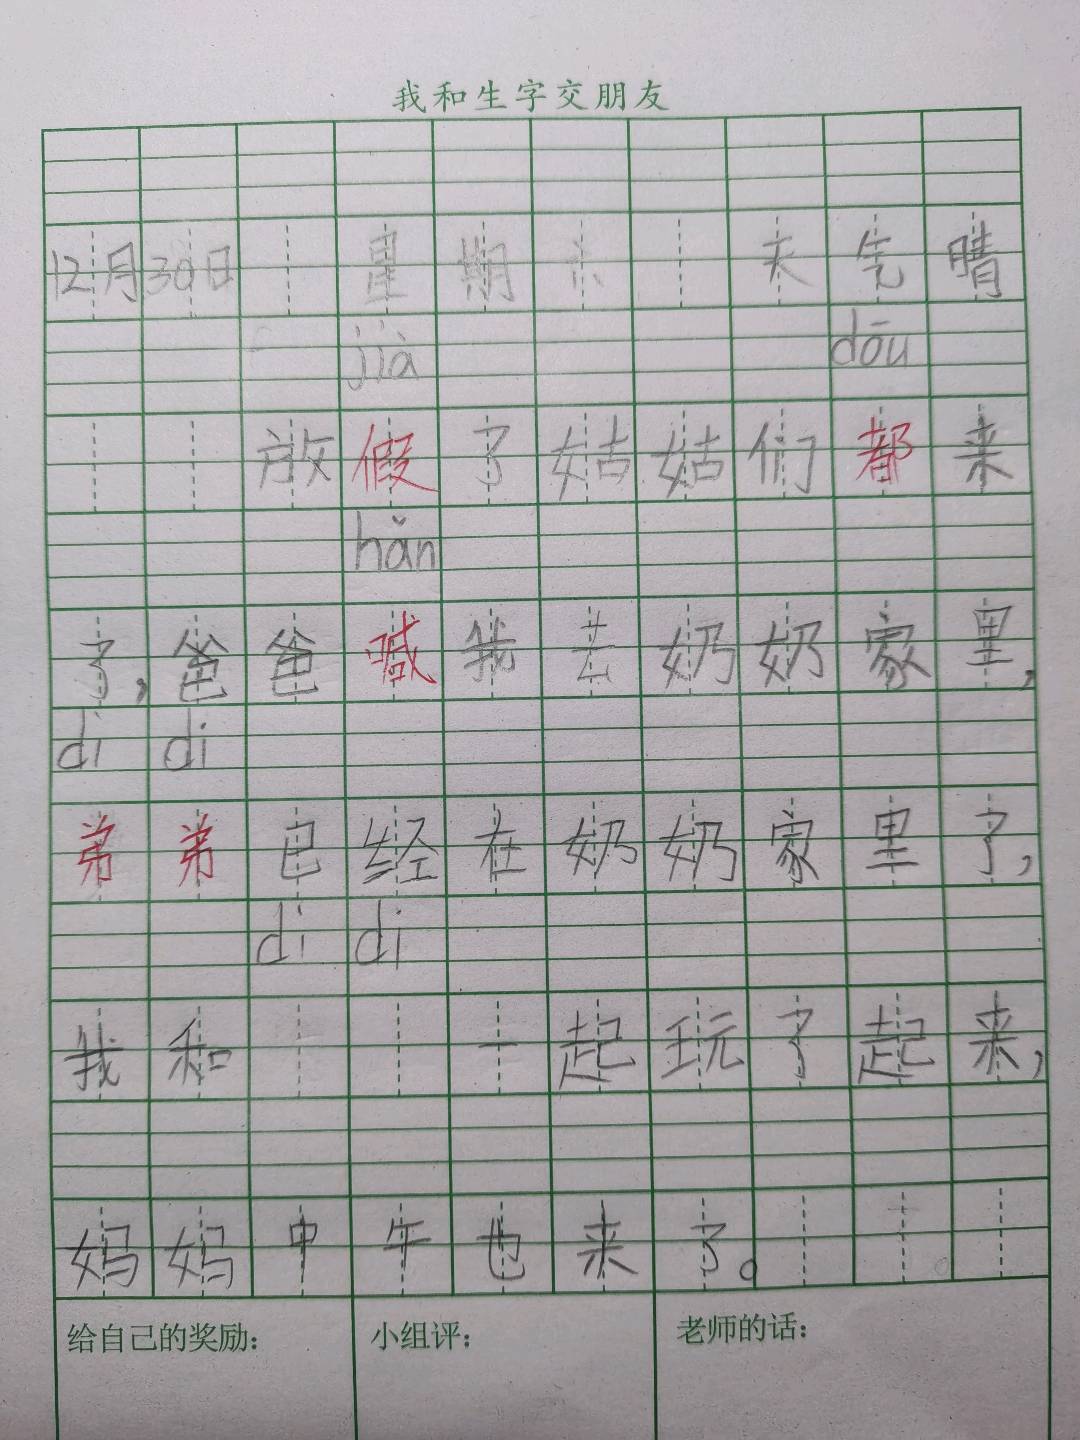 我和生字交朋友
12月30日 星期六 天气晴
jià dōu
放假了姑姑们都来
hǎn
了，爸爸喊我去奶奶家里，
di di
弟弟已经在奶奶家里了，
di di
我和 一起玩了起来，
妈妈中午也来了。
给自己的奖励： 小组评： 老师的话：